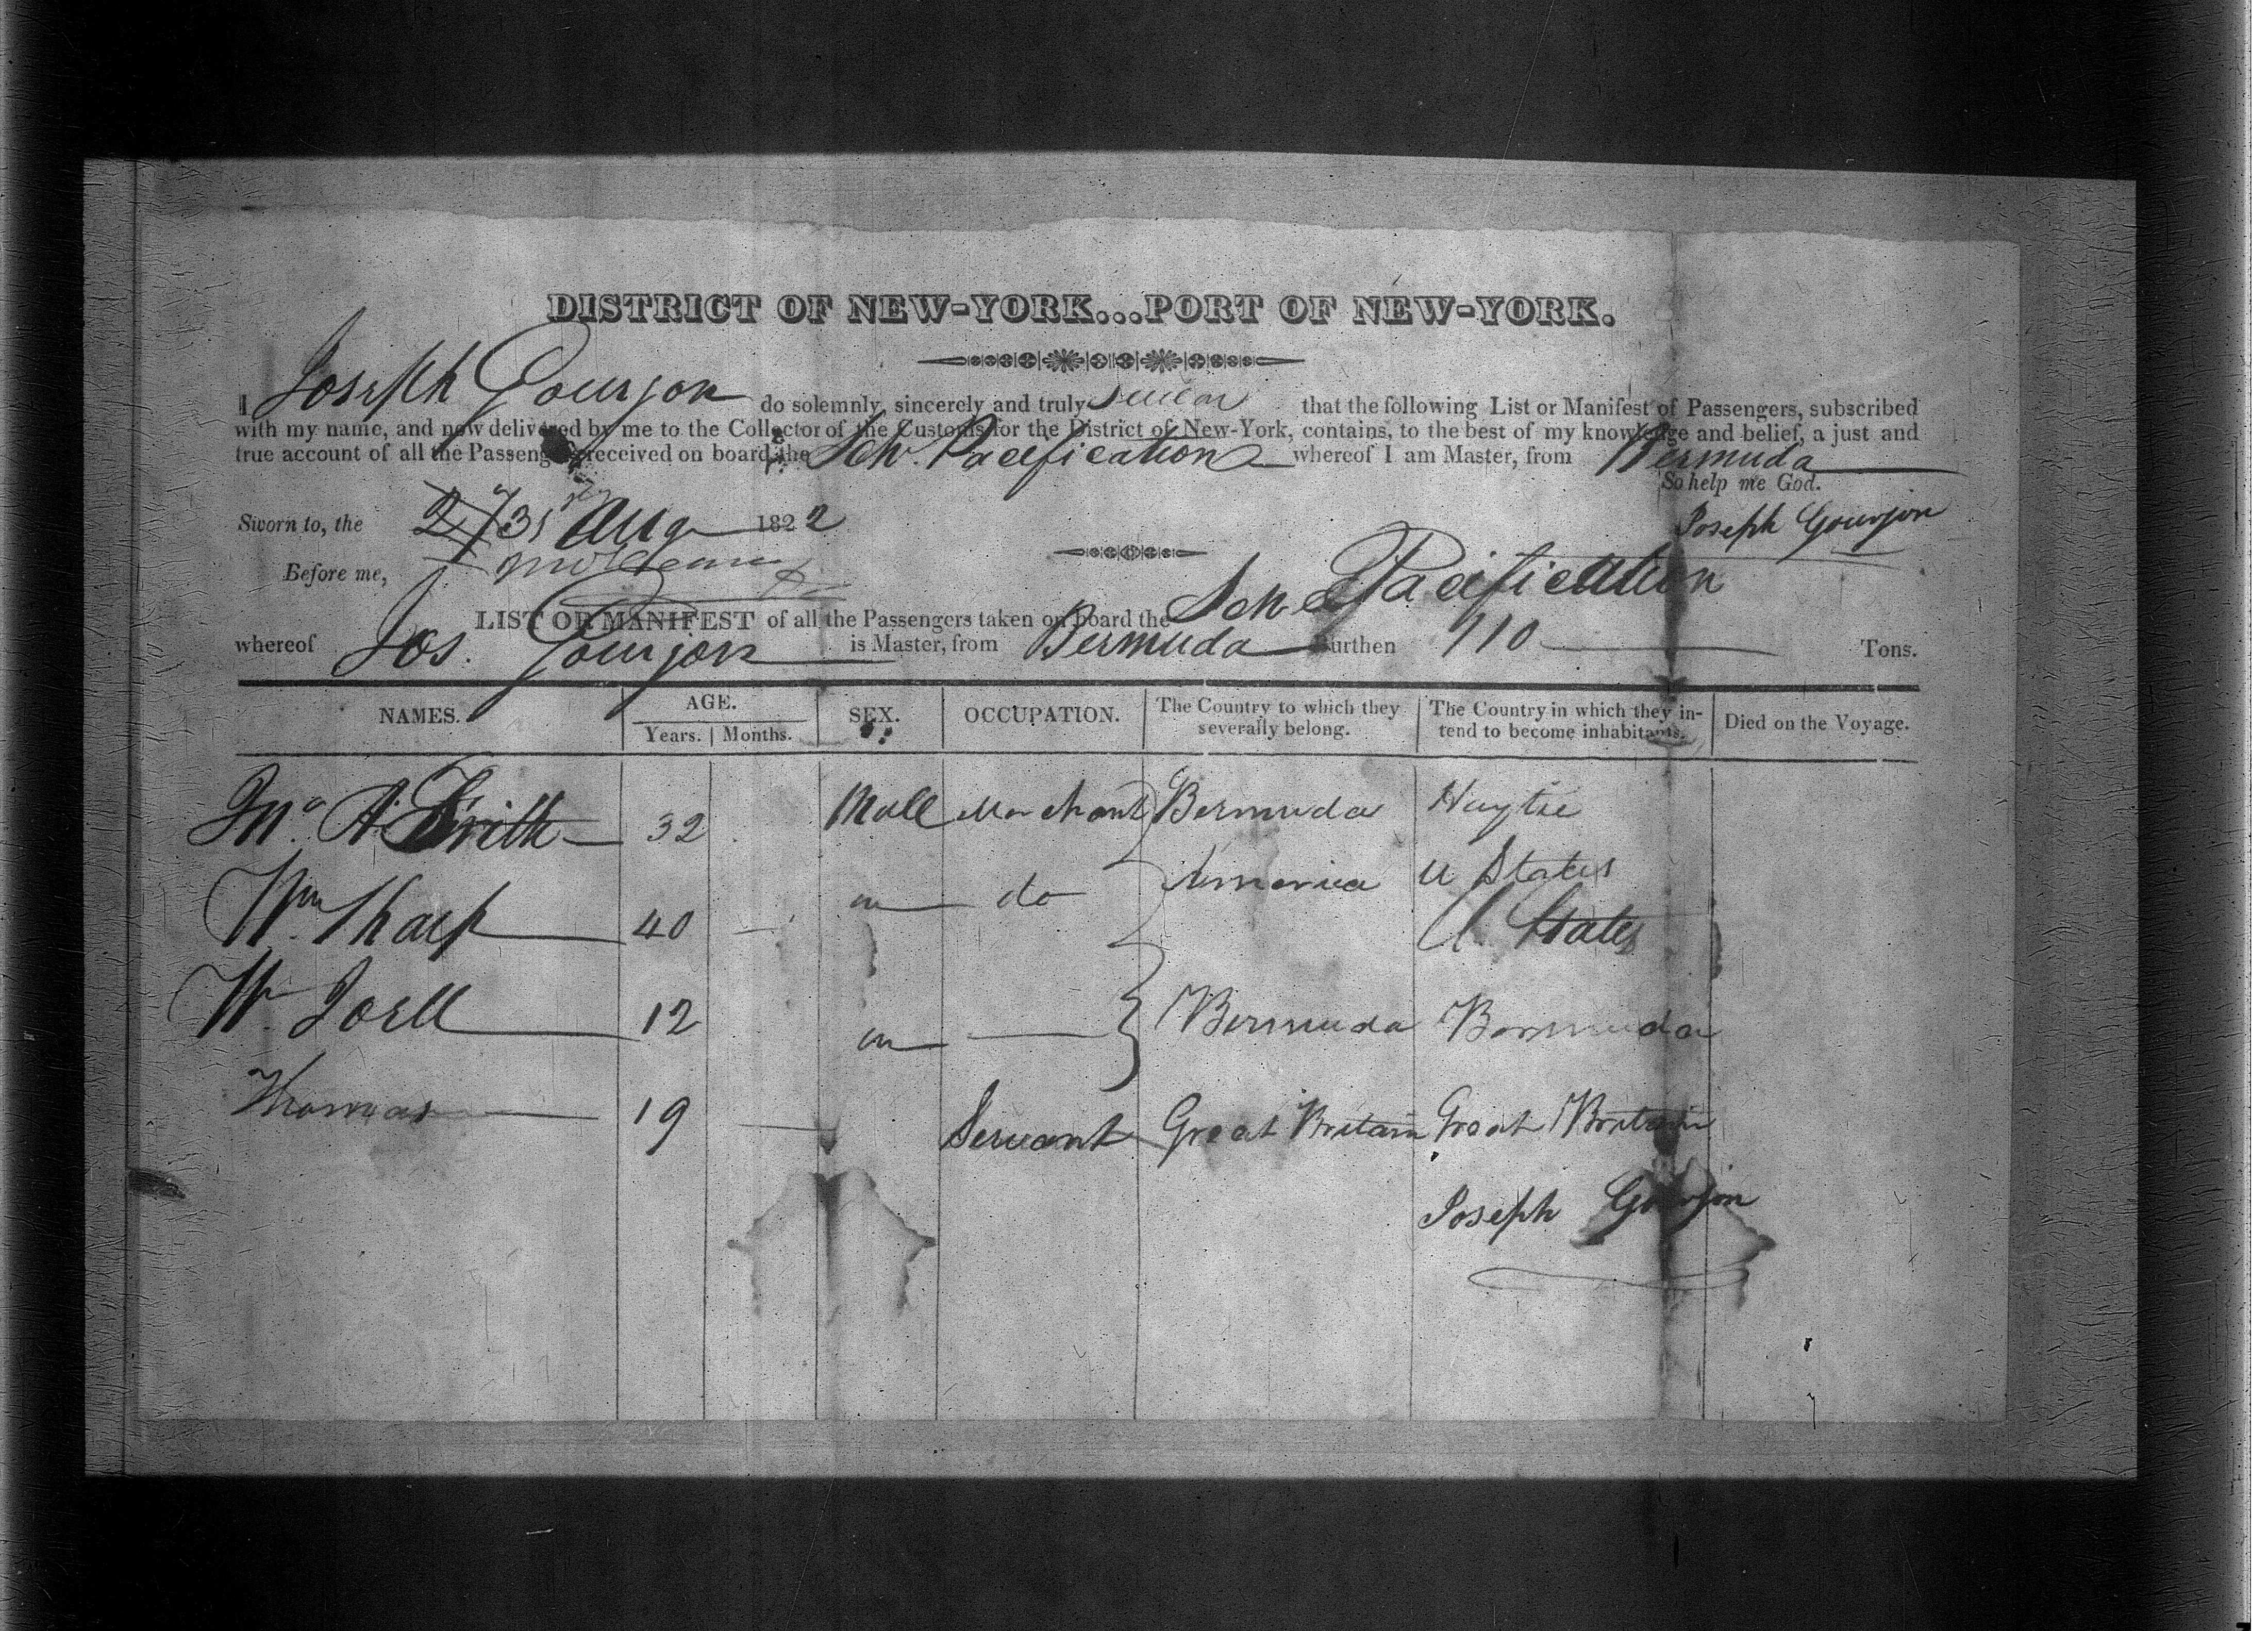 DISTRICT OF NEW-YORK...PORT OF NEW-YORK.
I Joseph Gourjon do solemnly, sincerely and truly swear that the following List or Manifest of Passengers, subscribed
with my name, and now delivered by me to the Collector of the Customs for the District of New-York, contains, to the best of my knowledge and belief, a just and
true account of all the Passengers received on board the Schr. Pacification whereof I am Master, from Bermuda
So help me God.
Sworn to, the 27 31st Aug 1822 Joseph Gourjon
Before me,
LIST OR MANIFEST of all the Passengers taken on board the Schr Pacification
whereof Jos. Gourjon is Master, from Bermuda Burthen 110 Tons.
NAMES. AGE. SEX. OCCUPATION. The Country to which they severally belong. The Country in which they intend to become inhabitants. Died on the Voyage.
Years. Months.
Jno. A. Frith 32 Male Marchant Bermuda Haytie
Wm Tharp 40 do America U States
U. States
Wm Joell 12 Bermuda Bermuda
Thomas 19 Servant Great Britain Great Britain
Joseph Gourjon